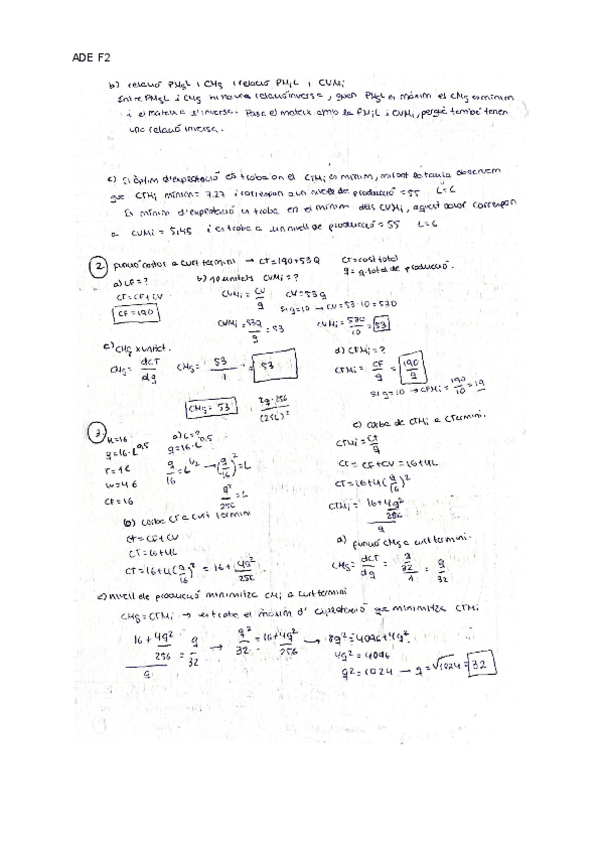 ADE F2
b) relació PMgL i CMg i relació PMjL i CVMj
Entre PMgL i CMg hi ha una relació inversa, quan PMgL és màxim el CMg es mínim
i el mateix a l'inversa. Passa el mateix amb la PMjL i CVMj, perquè també tenen
una relació inversa.
c) Si òptim d'explotació es troba on el CTMj es mínim, mirant la taula observem
que CTMj mínim = 7.27 i correspon a un nivell de producció = 55 L=6
El mínim d'explotació es troba en el mínim dels CVMj, aquest valor correspon
a CVMi = 5,45 i es troba a un nivell de producció = 55 L=6
2. funció costos a curt termini → CT=190+53Q CT=cost total
q = q.total de producció.
a) CF=?
CT=CF+CV
CF=190
b) 10 unitats CVMi=?
CVMi = CV/q CV=53q
Si q=10 → CV=53·10=530
CVMi = 53q/q = 53 CVMi = 530/10 = 53
c) CMg x unitat.
CMg = dCT/dq CMg = 53/1 = 53
CMg = 53
2q·256/(256)²
d) CFMi=?
CFMi = CF/q = 190/q
Si q=10 → CFMi = 190/10 = 19
3. K=16
q=16·L^0,5
r=1€
w=4€
CF=16
a) L=?
q=16·L^0,5
q/16 = L^1/2 → (q/16)² = L
q²/256 = L
b) corba CT a curt termini
CT=CF+CV
CT=16+4L
CT=16+4(q/16)² = 16+4q²/256
c) corba de CTMi a C termini.
CTMi = CT/q
CT = CF+CV = 16+4L
CT=16+4(q/16)²
CTMi = (16+4q²/256)/q
d) funció CMg a curt termini.
CMg = dCT/dq = (q/32)/1 = q/32
e) nivell de producció minimitza CMi a curt termini
CMg=CTMi → es troba el màxim d'explotació que minimitza CTMi
(16+4q²/256)/q = q/32 → q²/32 = 16+4q²/256 → 8q²=4096+4q²
4q²=4096
q²=1024 → q=√1024=32